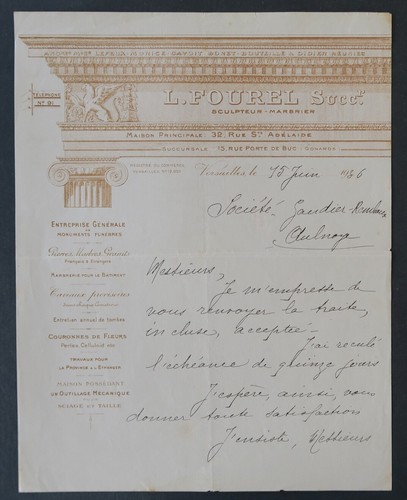 ANC.NES M.ONS LEFEUX-MORICE GAVOIT GONET-BOUTEILLE & DIDIER RÉUNIES
TÉLÉPHONE
N° 91
L. FOUREL Succ.r
SCULPTEUR-MARBRIER
MAISON PRINCIPALE: 32, RUE S.te ADÉLAIDE
SUCCURSALE: 15, RUE PORTE DE BUC - GONARDS
Versailles, le 15 Juin
Société Gaudier-Rembaux
Aulnoye
ENTREPRISE GÉNÉRALE
DE
MONUMENTS FUNÈBRES
Pierres, Marbres, Granits
Français & Etrangers
MARBRERIE POUR LE BÂTIMENT
Caveaux provisoires
Entretien annuel de tombes
COURONNES DE FLEURS
Perles, Celluloïd, etc.
TRAVAUX POUR
LA PROVINCE & L'ETRANGER
MAISON POSSÉDANT
UN OUTILLAGE MÉCANIQUE
SCIAGE ET TAILLE
Messieurs,
Je m'empresse de
vous renvoyer la traite,
incluse, acceptée
J'ai reculé
l'échéance de quinze jours
J'espère, ainsi, vous
donner toute satisfaction
J'insiste, Messieurs